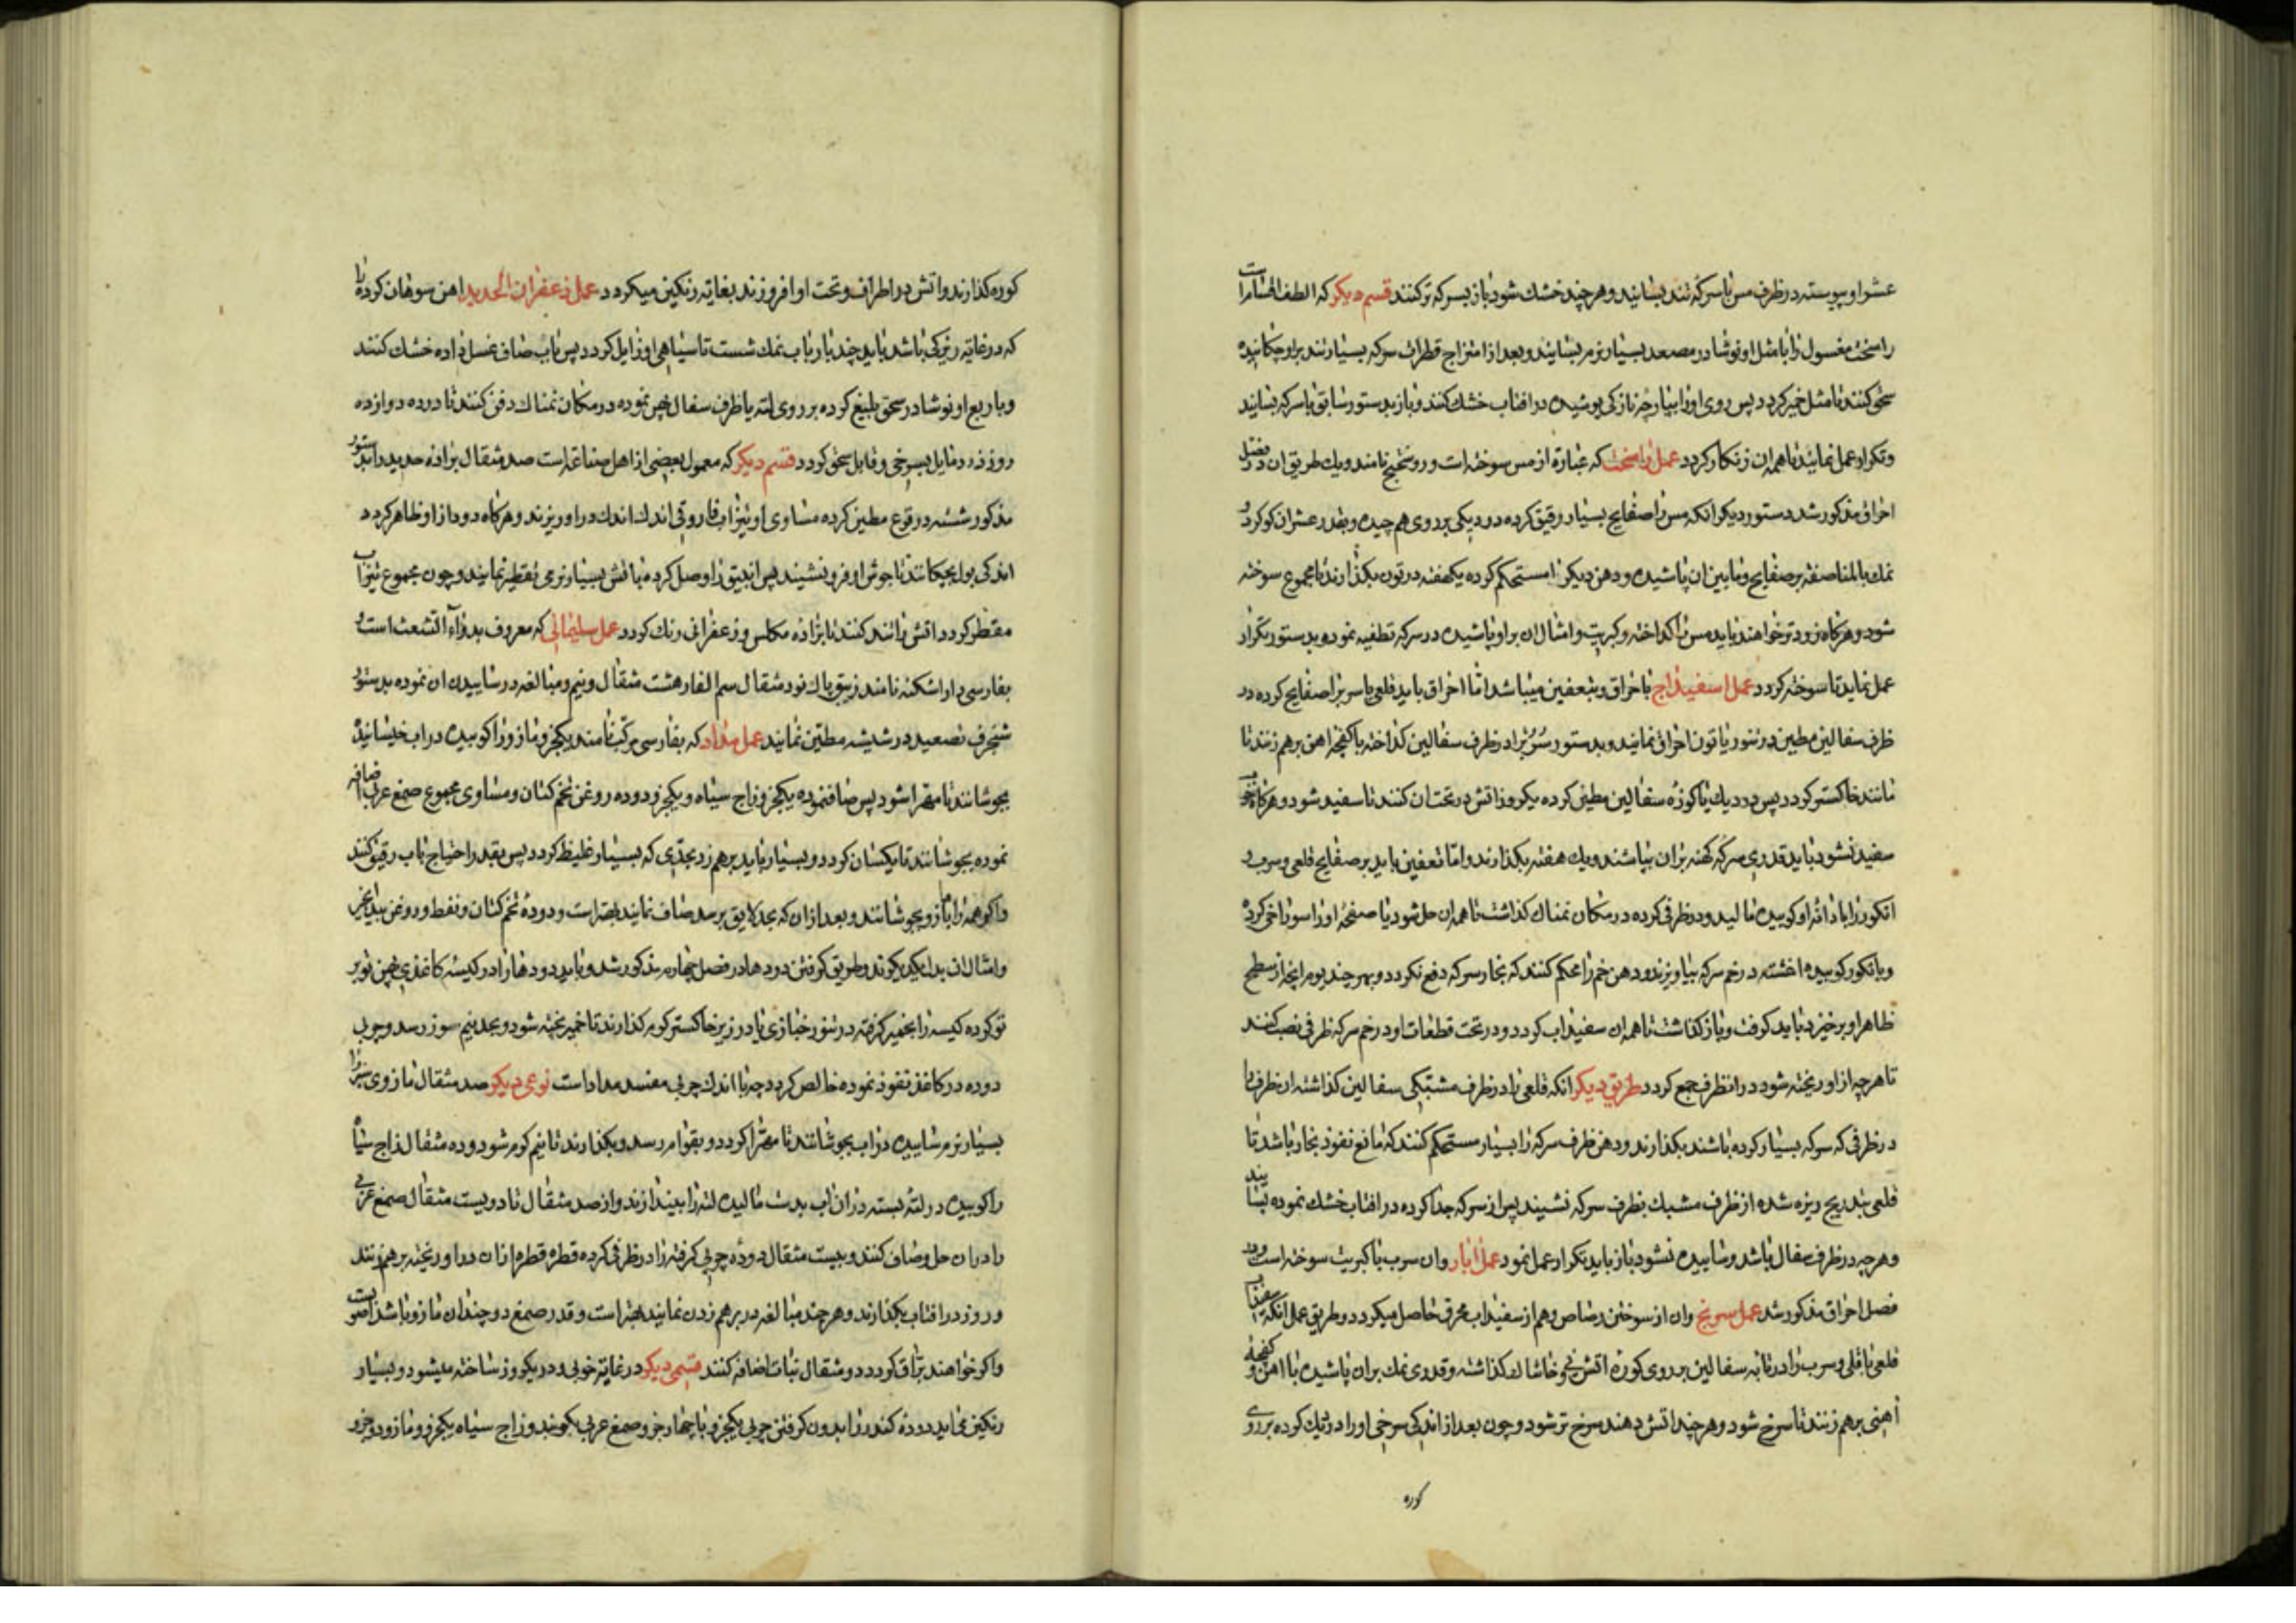 عشر او پیوسته در ظرف مس با سرکه تند بسایند و هر چند خشک شود باز بسرکه تر کنند قسم دیکر که الطف اقسام است
راسخت مغسول را با مثل او نوشادر مصعد بسیار نرم بسایند و بعد از امتزاج قطرات سرکه بسیار تند براو چکانیده
سحق کنند تا مثل خمیر کردد پس روی او را بپارچه نازکی پوشیده در افتاب خشک کنند و باز بدستور سابق با سرکه بسایند
و تکرار عمل نمایند تا همه ان زنکار کردد عمل راسخت که عبارة از مس سوخته است و روسختج نامند و یک طریق ان در فصل
احراق مذکور شد دستور دیکر انکه مس را صفایح بسیار رقیق کرده در دیکی بر روی هم چیده و بقدر عشر ان کوکرد و
نمک بالمناصفه بر صفایح و مابین ان پاشیده و دهن دیک را مستحکم کرده یکهفته در تون بکذارند تا مجموع سوخته
شود و هرکاه زودتر خواهند باید مس را کداخته و کبریت و امثال ان براو پاشیده در سرکه تطفیه نموده بدستور تکرار
عمل نماید تا سوخته کردد عمل اسفیداج باحراق و بتعفین میباشد اما احراق باید قلعی یا سرب را صفایح کرده در
ظرف سفالین مطین در تنور یا تون احراق نمایند و بدستور سرب را در ظرف سفالین کداخته با کفچه اهن برهم زنند تا
مانند خاکستر کردد پس در دیک یا کوزه سفالین مطین کرده یکروز اتش در تحت ان کنند تا سفید شود و هرکاه خوب
سفید نشود باید قدری سرکه کهنه بران بپاشند و یک هفته بکذارند و اما تعفین باید بر صفایح قلعی و سرب
انکور را با دانه او کوبیده مالید و در ظرفی کرده در مکان نمناک کذاشت تا همه ان حل شود یا صفحه او را سوراخ کرده
و بانکور کوبیده اغشته در خم سرکه بیاویزند و دهن خم را محکم کنند که بخار سرکه دفع نکردد و بهر چند یوم انچه از سطح
ظاهر او برخیزد باید کرفت و باز کذاشت تا همه ان سفیداب کردد و در تحت قطعات او در خم سرکه ظرفی نصب کنند
تا هر چه از او ریخته شود در انظرف جمع کردد طریق دیکر انکه قلعی را در ظرف مشبکی سفالین کذاشته ان ظرف را
در ظرفی که سرکه بسیار کرده باشند بکذارند و دهن ظرف سرکه را بسیار مستحکم کنند که مانع نفوذ بخار باشد تا
قلعی بتدریج ریزه شده از ظرف مشبک بظرف سرکه نشیند پس از سرکه جدا کرده در افتاب خشک نموده بسایند
و هر چه در ظرف سفال باشد و ساییده نشود باز باید تکرار عمل نمود عمل ابار و ان سرب با کبریت سوخته است و در
فصل احراق مذکور شد عمل سرنج و ان از سوختن رصاص و هم از سفیداب محرق حاصل میکردد و طریق عمل انکه سفیداب
قلعی یا قلی و سرب را در تابه سفالین بر روی کوره اتش خاشاک کذاشته و قدری نمک بران پاشیده با اهن و کفچه
اهنی برهم زنند تا سرخ شود و هر چند اتش دهند سرخ تر شود و چون بعد از اندک سرخی او را در دیک کرده بر روی
کوره
کوره کذارند و اتش در اطراف و تحت او افروزند بغایة رنکین میکردد عمل زعفران الحدید اهن سوهان کرده را
که در غایة ریزکی باشد باید چند بار باب نمک شست تا سیاهی او زایل کردد پس باب صاف غسل داده خشک کنند
و با ربع او نوشادر سحق بلیغ کرده بر روی لته یا ظرف سفال پهن نموده در مکان نمناک دفن کنند تا در ده دوازده
روز زرد مایل بسرخی و قابل سحق کردد قسم دیکر که معمول بعضی از اهل صناعة است صد مثقال براده حدید را بدستور
مذکور شسته در قرع مطین کرده مساوی او تیزاب فاروقی اندک اندک در او ریزند و هرکاه دود از او ظاهر کردد
اندکی بول بچکانند تا جوش او فرو نشیند پس انبیق را وصل کرده باتش بسیار نرمی تقطیر نمایند و چون مجموع تیزاب
مقطر کردد اتش را تند کنند تا براده مکلس و زعفرانی رنک کردد عمل سلیمانی که معروف بدواء الشعث است و
بفارسی داراشکنه نامند زیبق پاک نود مثقال سم الفار هشت مثقال و نیم و مبالغه در ساییدن ان نموده بدستور
شنجرف تصعید در شیشه مطین نمایند عمل مداد که بفارسی مرکب نامند یکجزو مازو را کوبیده در اب خیسانیده
بجوشانند تا مهرا شود پس صاف نموده یکجزو زاج سیاه و یکجزو دوده روغن تخم کتان و مساوی مجموع صمغ عربی اضافه
نموده بجوشانند تا یکسان کردد و بسیار باید برهم زد بحدی که بسیار غلیظ کردد پس بقدر احتیاج باب رقیق کنند
و اکر همه را با مازو بجوشانند و بعد از ان که بحد لایق برسد صاف نمایند بهتر است و دوده تخم کتان و نفط و روغن بیدانجیر
و امثال ان بد یکدیکرند و طریق کرفتن دودها در فصل چهارم مذکور شد و باید دودها را در کیسه کاغذی پهن توبر
تو کرده کیسه را بخمیر کرفته در تنور خبازی یا در زیر خاکستر کرم کذارند تا خمیر پخته شود و بحد نیم سوز رسد و چربی
دوده در کاغذ نفوذ نموده خالص کردد چه با اندک چربی مفسد مداد است نوعی دیکر صد مثقال مازوی سبز را
بسیار نرم ساییده در اب بجوشانند تا مهرا کردد و بقوام رسد و بکذارند تا نیم کرم شود و ده مثقال زاج سیاه
را کوبیده در لته بسته در ان اب بدست مالیده لته را بیندازند و از صد مثقال تا دویست مثقال صمغ عربی
را در ان حل و صاف کنند و بیست مثقال دوده چربی کرفته را در ظرفی کرده قطره قطره از ان در او ریخته برهم زنند
و روز در افتاب بکذارند و هر چند مبالغه در برهم زدن نمایند بهتر است و قدر صمغ دو چندان مازو باشد اصوب است
و اکر خواهند براق کردد دو مثقال نبات اضافه کنند قسمی دیکر در غایة خوبی و در یکروز ساخته میشود و بسیار
رنکین نماید دوده کندر را بدون کرفتن چربی یکجزو با چهار جزو صمغ عربی بکوبند و زاج سیاه یکجزو و مازو دو جزو